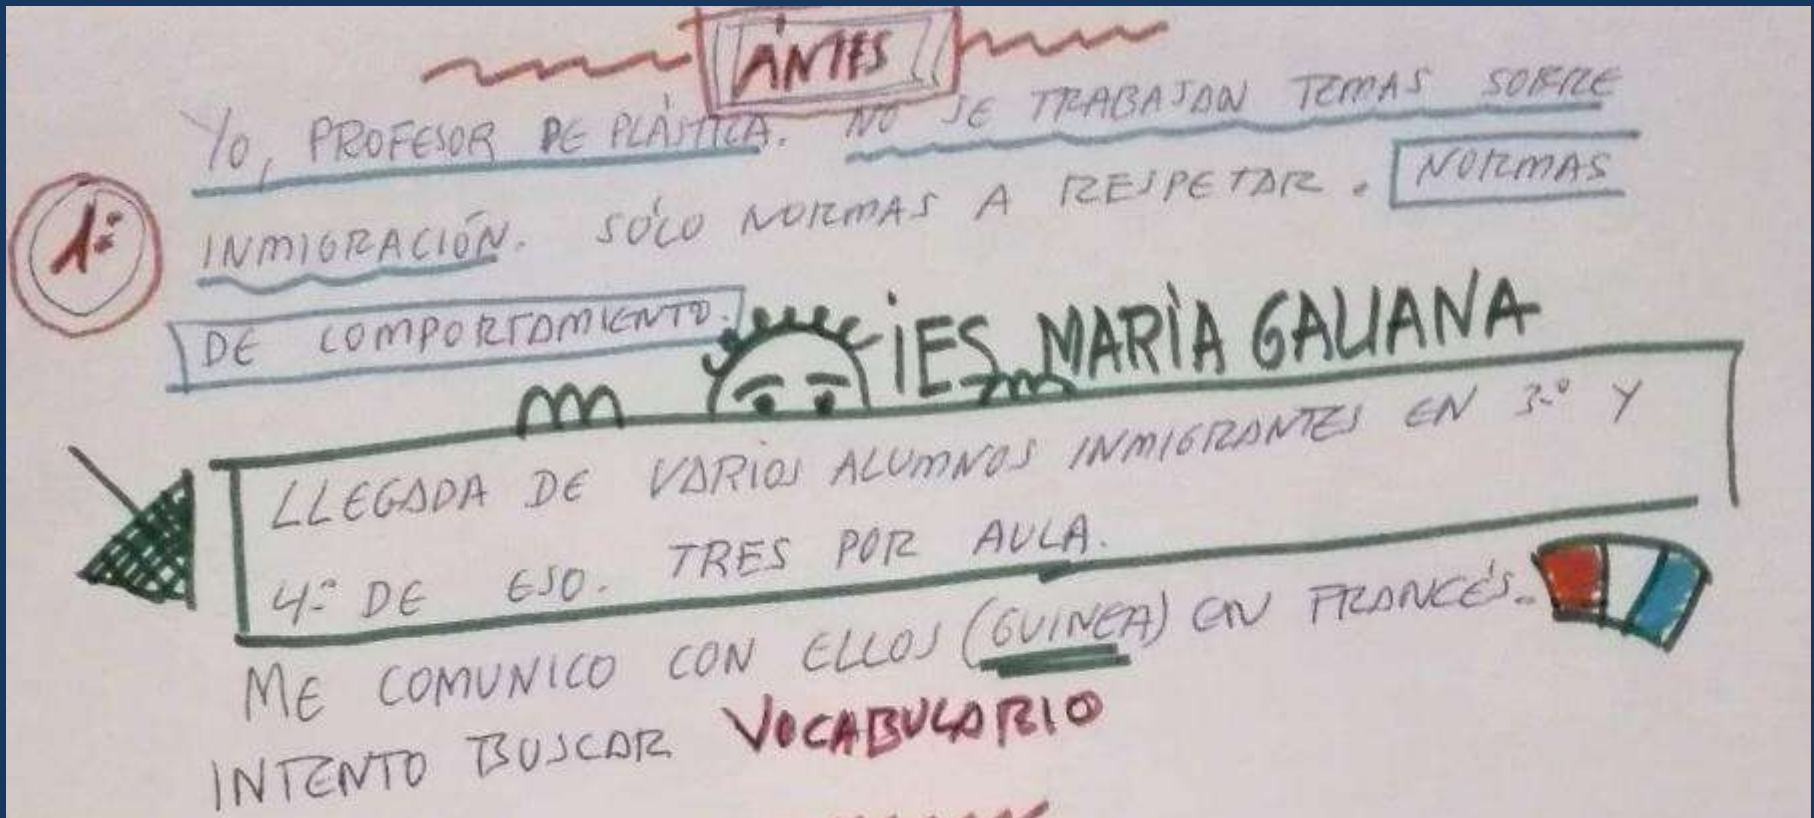 ÁNTES
YO, PROFESOR DE PLÁSTICA. NO SE TRABAJAN TEMAS SOBRE
1º
INMIGRACIÓN. SÓLO NORMAS A RESPETAR. NORMAS
DE COMPORTAMIENTO.
IES MARÍA GALIANA
LLEGADA DE VARIOS ALUMNOS INMIGRANTES EN 3.º Y
4º DE ESO. TRES POR AULA.
ME COMUNICO CON ELLOS (GUINEA) EN FRANCÉS.
INTENTO BUSCAR VOCABULARIO